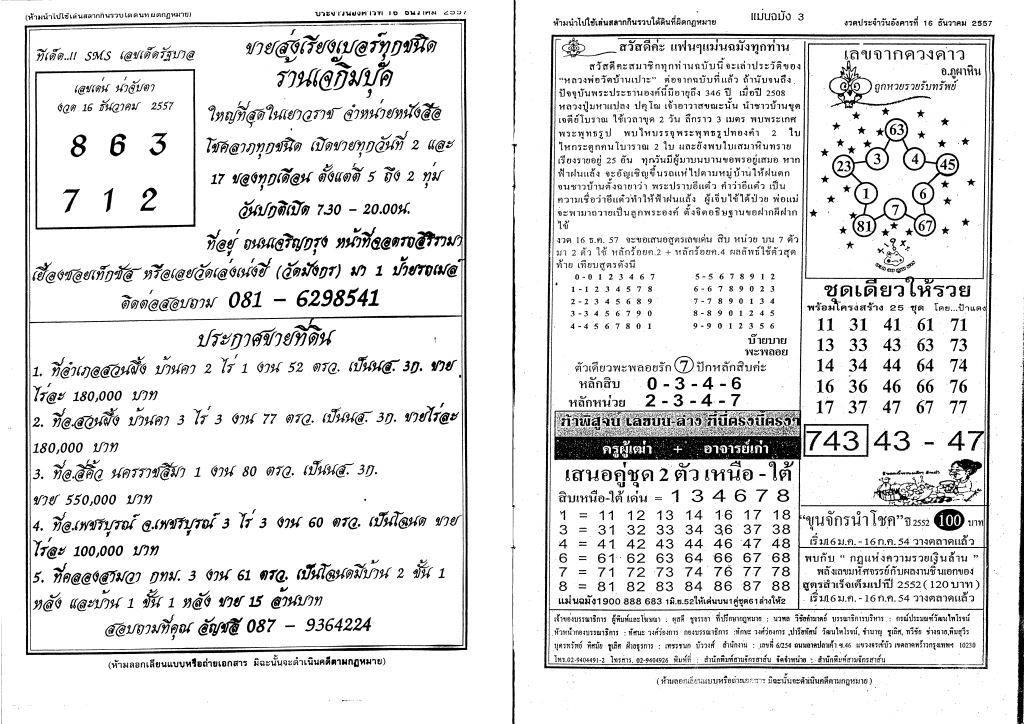 (ห้ามนำไปใช้เล่นสลากกินรวบได้ผิดกฎหมาย)
ประจำวันอังคารที่ 16 ธันวาคม 2557
ทีเด็ด..!! SMS เลขเด็ดรัฐบาล
เลขเด่น น่าจับตา
งวด 16 ธันวาคม 2557
8 6 3
7 1 2
ขายส่งเรียงเบอร์ทุกชนิด
ร้านเจ๊กิมบุ๊ค
ใหญ่ที่สุดในเยาวราช จำหน่ายหนังสือ
โชคลาภทุกชนิด เปิดขายทุกวันที่ 2 และ
17 ของทุกเดือน ตั้งแต่ตี 5 ถึง 2 ทุ่ม
วันปกติเปิด 7.30 - 20.00น.
ที่อยู่ ถนนเจริญกรุง หน้าที่จอดรถสิริรามา
เยื้องซอยเท็กซัส หรือเลยวัดเล่งเน่ยยี่ (วัดมังกร) มา 1 ป้ายรถเมล์
ติดต่อสอบถาม 081 - 6298541
ประกาศขายที่ดิน
1. ที่อำเภอสวนผึ้ง บ้านคา 2 ไร่ 1 งาน 52 ตรว. เป็นนส. 3ก. ขาย
ไร่ละ 180,000 บาท
2. ที่อ.สวนผึ้ง บ้านคา 3 ไร่ 3 งาน 77 ตรว. เป็นนส. 3ก. ขายไร่ละ
180,000 บาท
3. ที่อ.สี่คิ้ว นครราชสีมา 1 งาน 80 ตรว. เป็นนส. 3ก.
ขาย 550,000 บาท
4. ที่อ.เพชรบูรณ์ จ.เพชรบูรณ์ 3 ไร่ 3 งาน 60 ตรว. เป็นโฉนด ขาย
ไร่ละ 100,000 บาท
5. ที่คลองสามวา กทม. 3 งาน 61 ตรว. เป็นโฉนดมีบ้าน 2 ชั้น 1
หลัง และบ้าน 1 ชั้น 1 หลัง ขาย 15 ล้านบาท
สอบถามที่คุณ อัญชลี 087 - 9364224
(ห้ามลอกเลียนแบบหรือถ่ายเอกสาร มิฉะนั้นจะดำเนินคดีตามกฎหมาย)
(ห้ามนำไปใช้เล่นสลากกินรวบได้ผิดกฎหมาย)
แม่นฉมัง 3
งวดประจำวันอังคารที่ 16 ธันวาคม 2557
สวัสดีค่ะ แฟนๆแม่นฉมังทุกท่าน
สวัสดีค่ะสมาชิกทุกท่านฉบับนี้จะเล่าประวัติของ
"หลวงพ่อวัดบ้านเปาะ" ต่อจากฉบับที่แล้ว ถ้านับจนถึง
ปัจจุบันพระประธานองค์นี้มีอายุถึง 346 ปี เมื่อปี 2508
หลวงปู่มหาแปลง ปคุโณ เจ้าอาวาสขณะนั้น นำชาวบ้านขุด
เจดีย์โบราณ ใช้เวลาขุด 2 วัน ลึกราว 3 เมตร พบพระเกศ
พระพุทธรูป พบไหบรรจุพระพุทธรูปทองคำ 2 ใบ
ไหกระดูกคนโบราณ 2 ใบ และยังพบใบเสมาหินทราย
เรียงรายอยู่ 25 อัน ทุกวันมีผู้มาบนบานขอพรอยู่เสมอ หาก
ฟ้าฝนแล้ง จะอัญเชิญขึ้นรถแห่ไปตามหมู่บ้านให้ฝนตก
จนชาวบ้านตั้งฉายาว่า พระปราบอีแต๋ว คำว่าอีแต๋ว เป็น
ความเชื่อว่าอีแต๋วทำให้ฟ้าฝนแล้ง ผู้เจ็บไข้ได้ป่วย พ่อแม่
จะพามาถวายเป็นลูกพระองค์ ตั้งจิตอธิษฐานขอฝากผีฝาก
ไข้
งวด 16 ธ.ค. 57 จะขอเสนอสูตรเลขเด่น สิบ หน่วย บน 7 ตัว
มา 2 ตัว ใช้ หลักร้อยค.2 + หลักร้อยค.4 ผลลัพธ์ใช้ตัวสุด
ท้าย เทียบสูตรดังนี้
0-0 1 2 3 4 6 7 5-5 6 7 8 9 1 2
1-1 2 3 4 5 7 8 6-6 7 8 9 0 2 3
2-2 3 4 5 6 8 9 7-7 8 9 0 1 3 4
3-3 4 5 6 7 9 0 8-8 9 0 1 2 4 5
4-4 5 6 7 8 0 1 9-9 0 1 2 3 5 6
บ๊ายบาย
พะพลอย
ตัวเดียวพะพลอยรัก 7 ปักหลักสิบค่ะ
หลักสิบ 0 - 3 - 4 - 6
หลักหน่วย 2 - 3 - 4 - 7
ท้าพิสูจน์ เลขบน-ล่าง ที่นี่ตรงนี้ตรงๆ
ครูผู้เฒ่า + อาจารย์เก่า
เสนอคู่ชุด 2 ตัว เหนือ - ใต้
สิบเหนือ-ใต้ เด่น = 1 3 4 6 7 8
1 = 11 12 13 14 16 17 18
3 = 31 32 33 34 36 37 38
4 = 41 42 43 44 46 47 48
6 = 61 62 63 64 66 67 68
7 = 71 72 73 74 76 77 78
8 = 81 82 83 84 86 87 88
แม่นฉมัง1900 888 683 1มิ.ย.52ให้เด่นบน1คู่ชุด61ล่างให้2
เลขจากดวงดาว
อ.ภูผาหิน
ถูกหวยรวยรับทรัพย์
63
23 3 4 45
1 6
7
81 67
ชุดเดียวให้รวย
พร้อมโครงสร้าง 25 ชุด โดย...ป้าแดง
11 31 41 61 71
13 33 43 63 73
14 34 44 64 74
16 36 46 66 76
17 37 47 67 77
743 43 - 47
"ขุนจักรนำโชค"ปี 2552 100 บาท
เริ่ม16ม.ค. - 16ก.ค. 54 วางตลาดแล้ว
พบกับ " กฎแห่งความรวยเงินล้าน "
พลังเลขมหัศจรรย์กับผลงานชิ้นเอกของ
สูตรสำเร็จเต็มเปาปี 2552 ( 120 บาท )
เริ่ม16ม.ค. - 16ก.ค. 54 วางตลาดแล้ว
โทร.02-9404491-2 โทรสาร. 02-9404926 พิมพ์ที่ : สำนักพิมพ์สามจักรสาส์น จัดจำหน่าย : สำนักพิมพ์สามจักรสาส์น
(ห้ามลอกเลียนแบบหรือถ่ายเอกสาร มิฉะนั้นจะดำเนินคดีตามกฎหมาย)